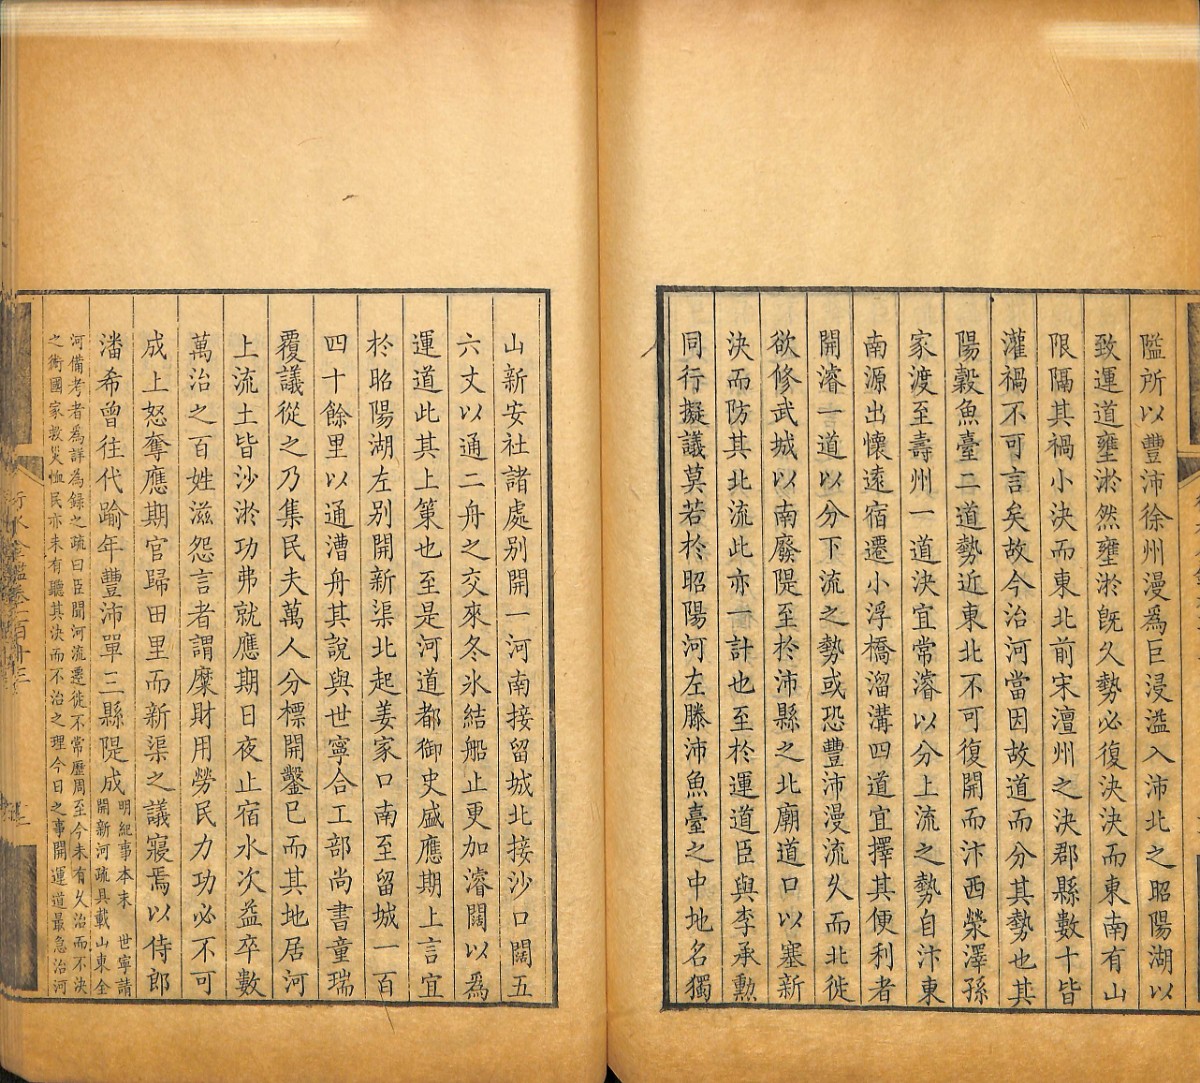 隘所以豐沛徐州漫爲巨浸溢入沛北之昭陽湖以
致運道壅淤然壅淤旣久勢必復決決而東南有山
限隔其禍小決而東北前宋澶州之決郡縣數十皆
灌禍不可言矣故今治河當因故道而分其勢也其
陽榖魚臺二道勢近東北不可復開而汴西滎澤孫
家渡至壽州一道決宜常濬以分上流之勢自汴東
南源出懷遠宿遷小浮橋溜溝四道宜擇其便利者
開濬一道以分下流之勢或恐豐沛漫流久而北徙
欲修武城以南廢隄至於沛縣之北廟道口以塞新
決而防其北流此亦一計也至於運道臣與李承勳
同行擬議莫若於昭陽河左滕沛魚臺之中地名獨
山新安社諸處別開一河南接留城北接沙口闊五
六丈以通二舟之交來冬氷結船止更加濬闊以爲
運道此其上策也至是河道都御史盛應期上言宜
於昭陽湖左別開新渠北起姜家口南至留城一百
四十餘里以通漕舟其說與世寧合工部尚書童瑞
覆議從之乃集民夫萬人分標開鑿已而其地居河
上流土皆沙淤功弗就應期日夜止宿水次益卒數
萬治之百姓滋怨言者謂糜財用勞民力功必不可
成上怒奪應期官歸田里而新渠之議寢焉以侍郎
潘希曾往代踰年豐沛單三縣隄成
明紀事本末　世寧請
開新河疏具載山東全
河備考者爲詳為錄之疏曰臣聞河流遷徙不常歷周至今未有久治而不決
之術國家救災恤民亦未有聽其決而不治之理今日之事開運道最急治河
行水金鑑卷一百十三